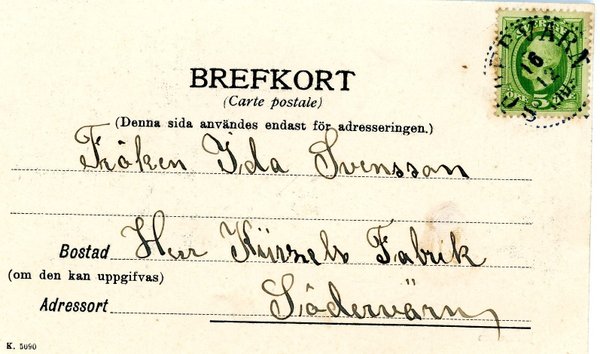 BREFKORT
(Carte postale)
(Denna sida användes endast för adresseringen.)
Fröken Ida Svensson
Bostad Herr Kürzels Fabrik
(om den kan uppgifvas)
Adressort Södervärn
K. 5090
16
12
5